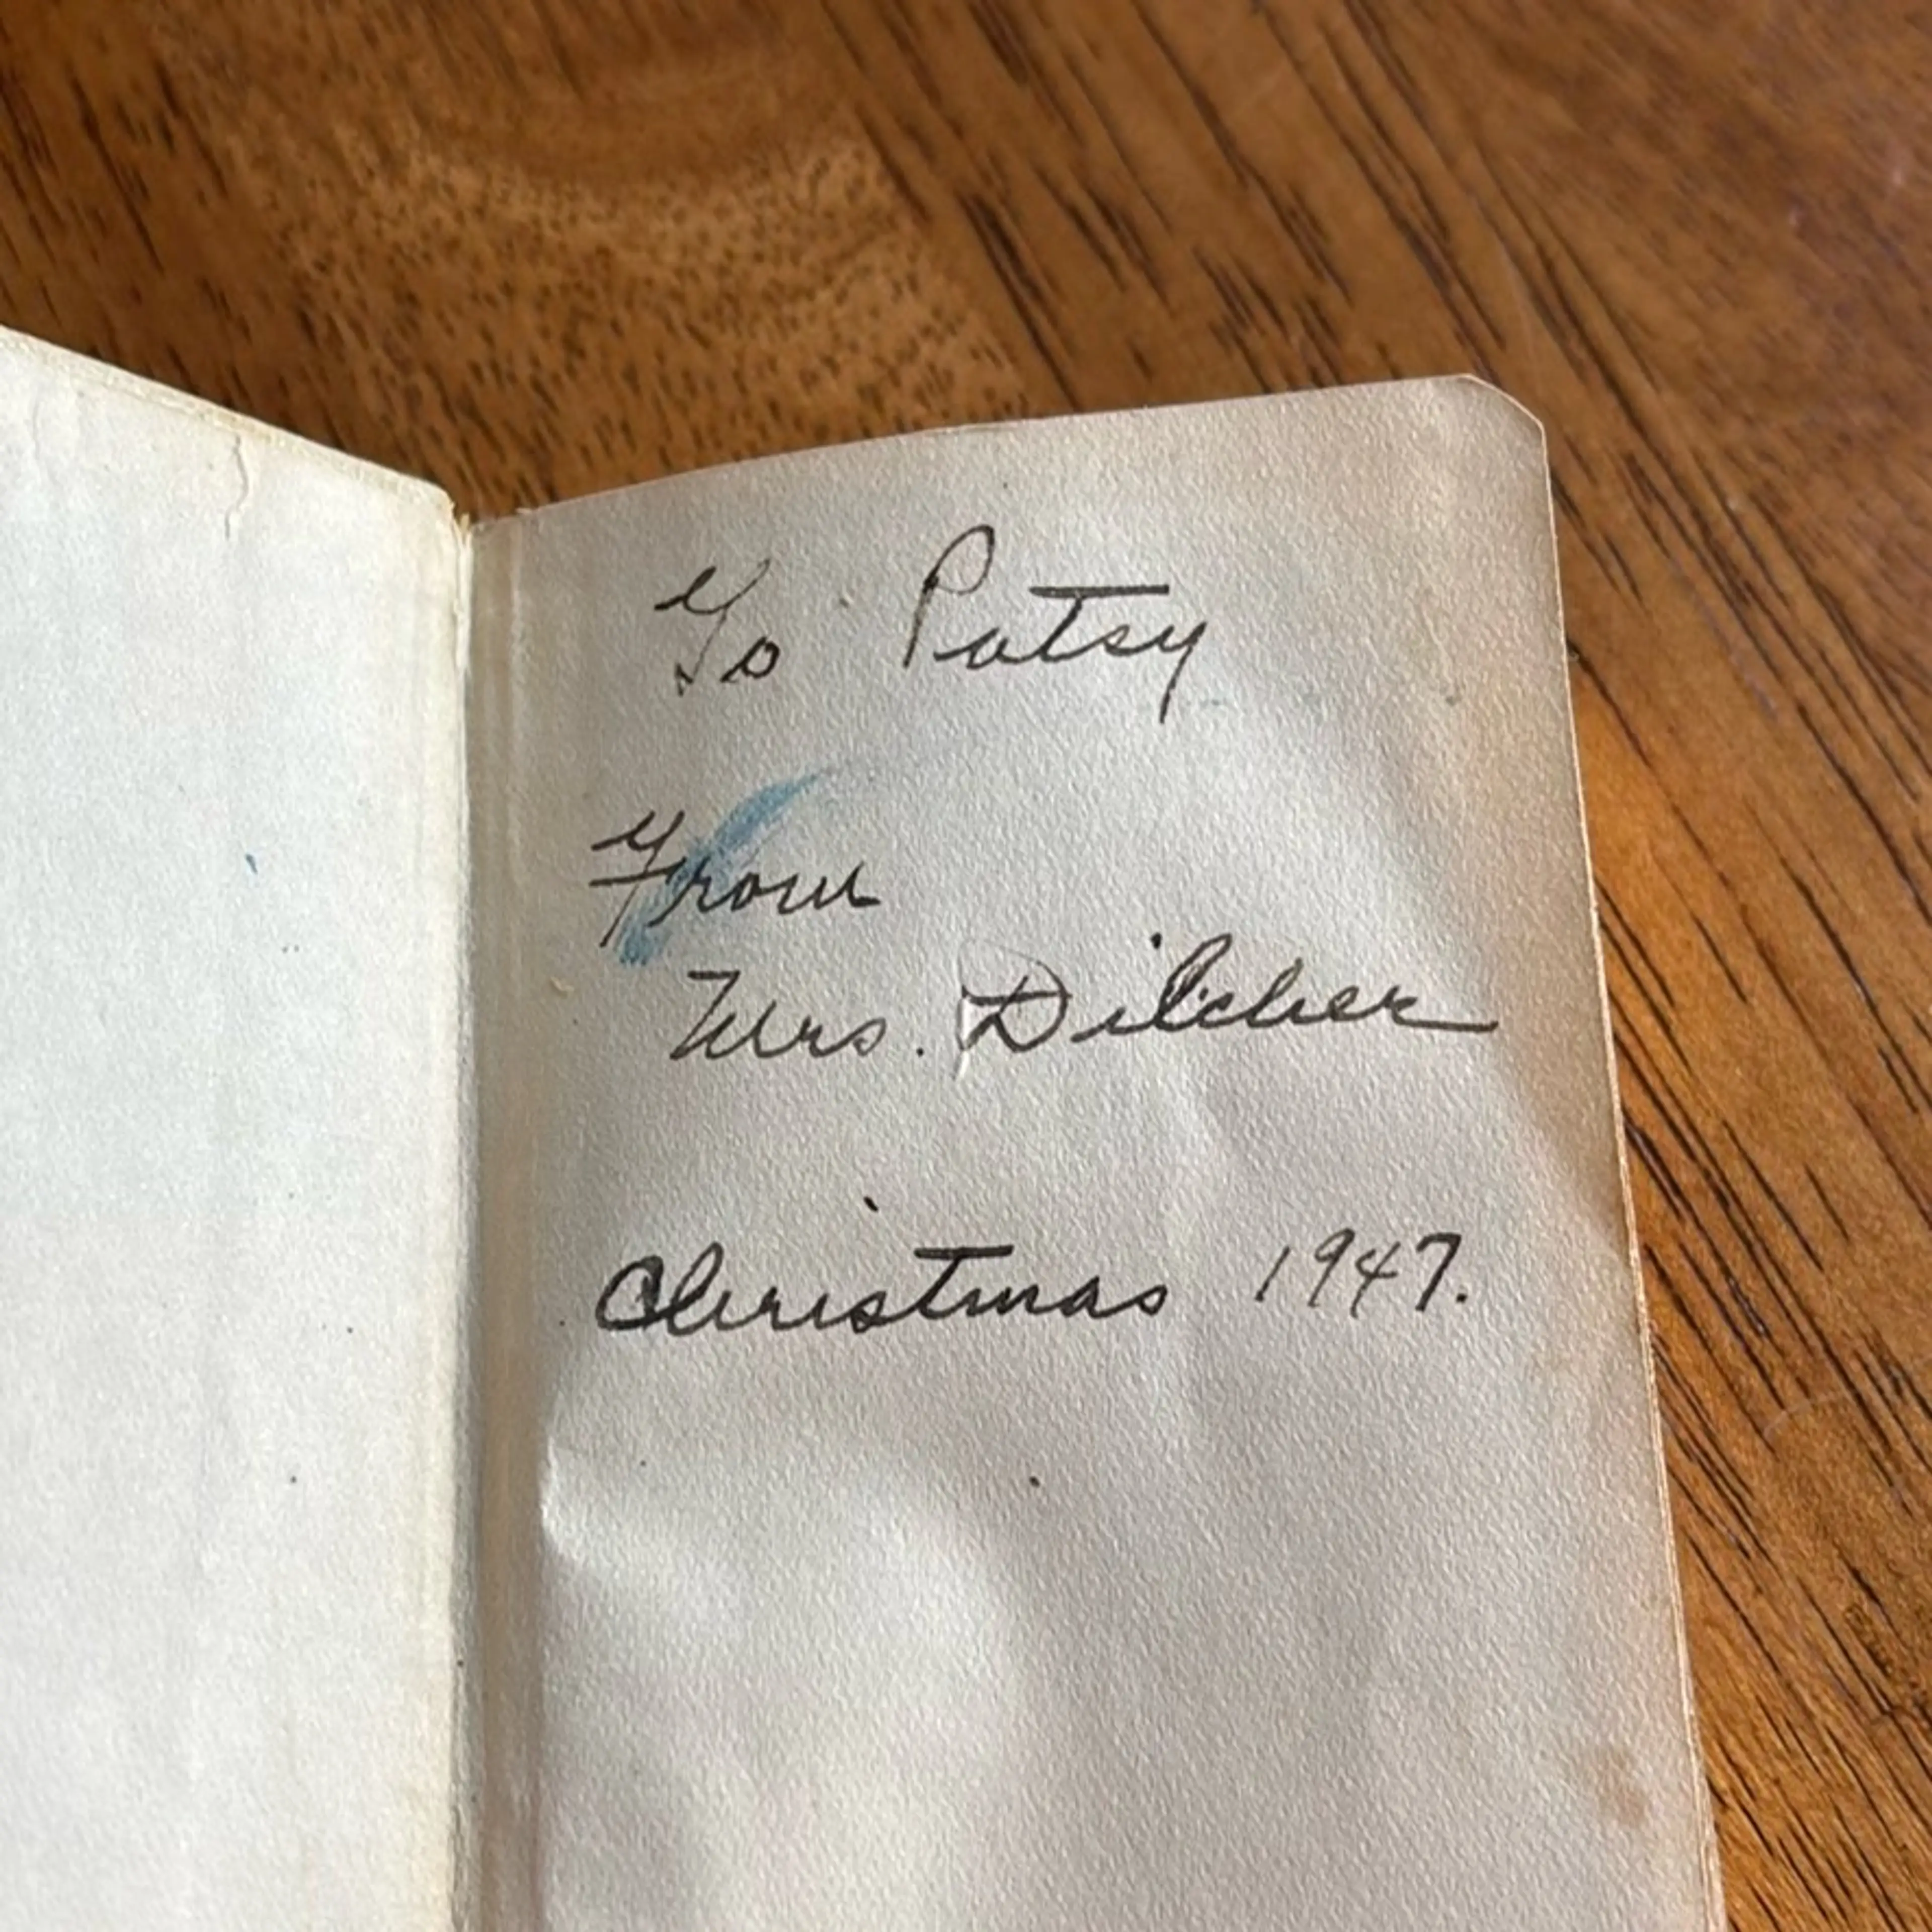 To Patsy
From
Mrs. Dilcher
Christmas 1947.